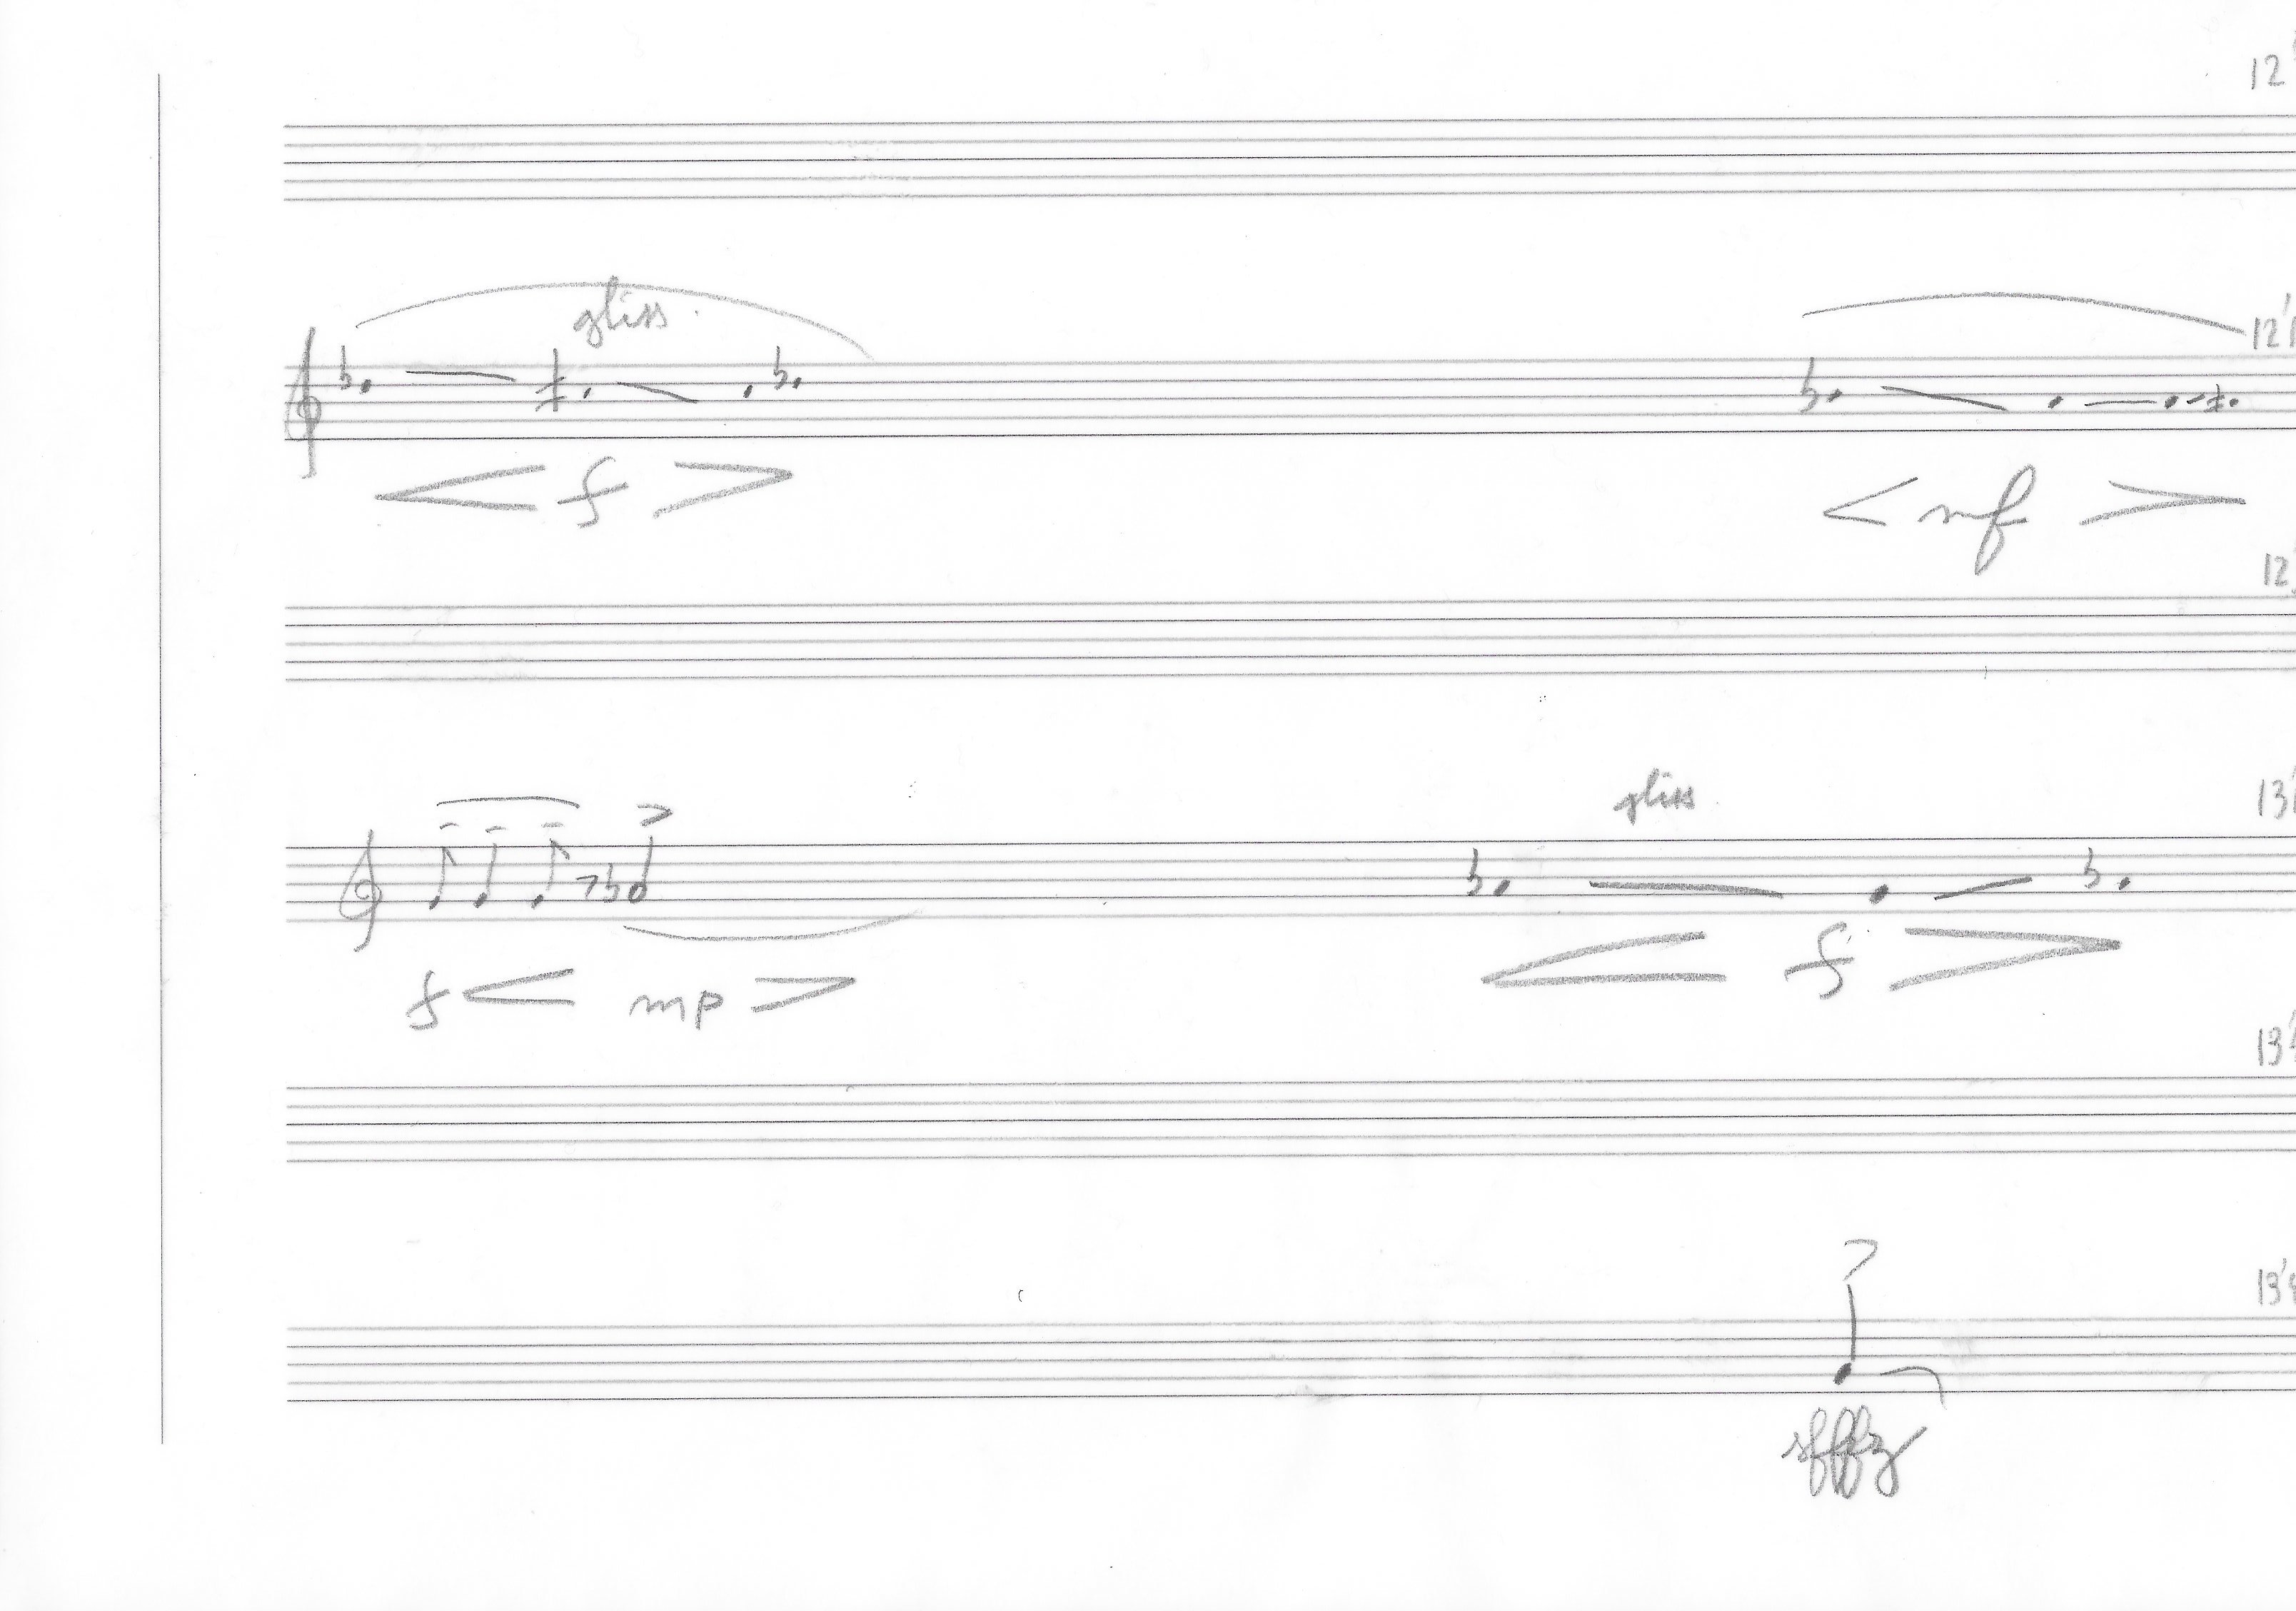 12'
gliss.
12'1
f
mf
12
gliss
13'
f mp
f
13'
13'
sfffz